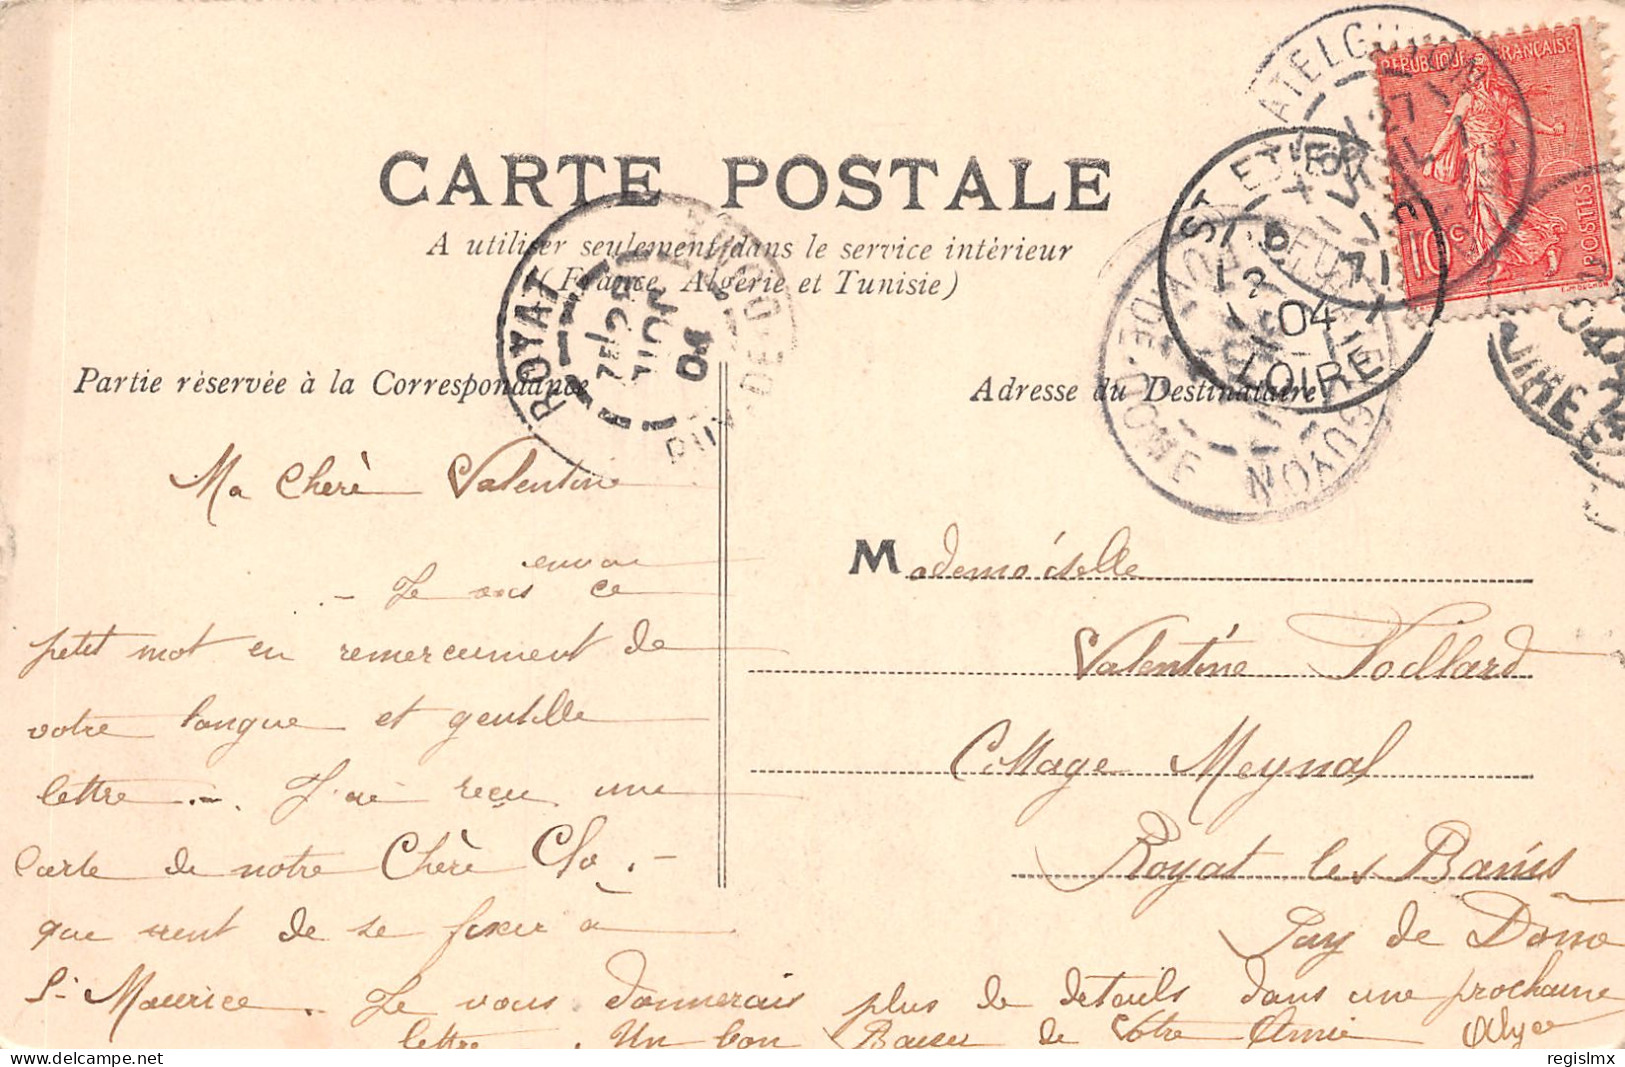 CARTE POSTALE
A utiliser seulement dans le service intérieur
(France, Algérie et Tunisie)
Partie réservée à la Correspondance
Adresse du Destinataire
RÉPUBLIQUE FRANÇAISE
POSTES
10c
ST ETIENNE
6
2
71
04
LOIRE
ROYAT
PUY-DE-DOME
JUIL
04
GUYON
PUY-DE-DOME
Ma Cherè Valentine
envoie
Je vous ce
petit mot en remerciement de
votre longue et gentille
lettre. J'ai reçu une
carte de notre Chère Clo.
que vient de se fixer à
St Maurice. Je vous donnerais plus de details dans une prochaine
lettre. Un bon Baiser de Votre Amie
Mademoiselle
Valentine
Cottage Meynal
Royat les Bains
Puy de Dôme
regislmx